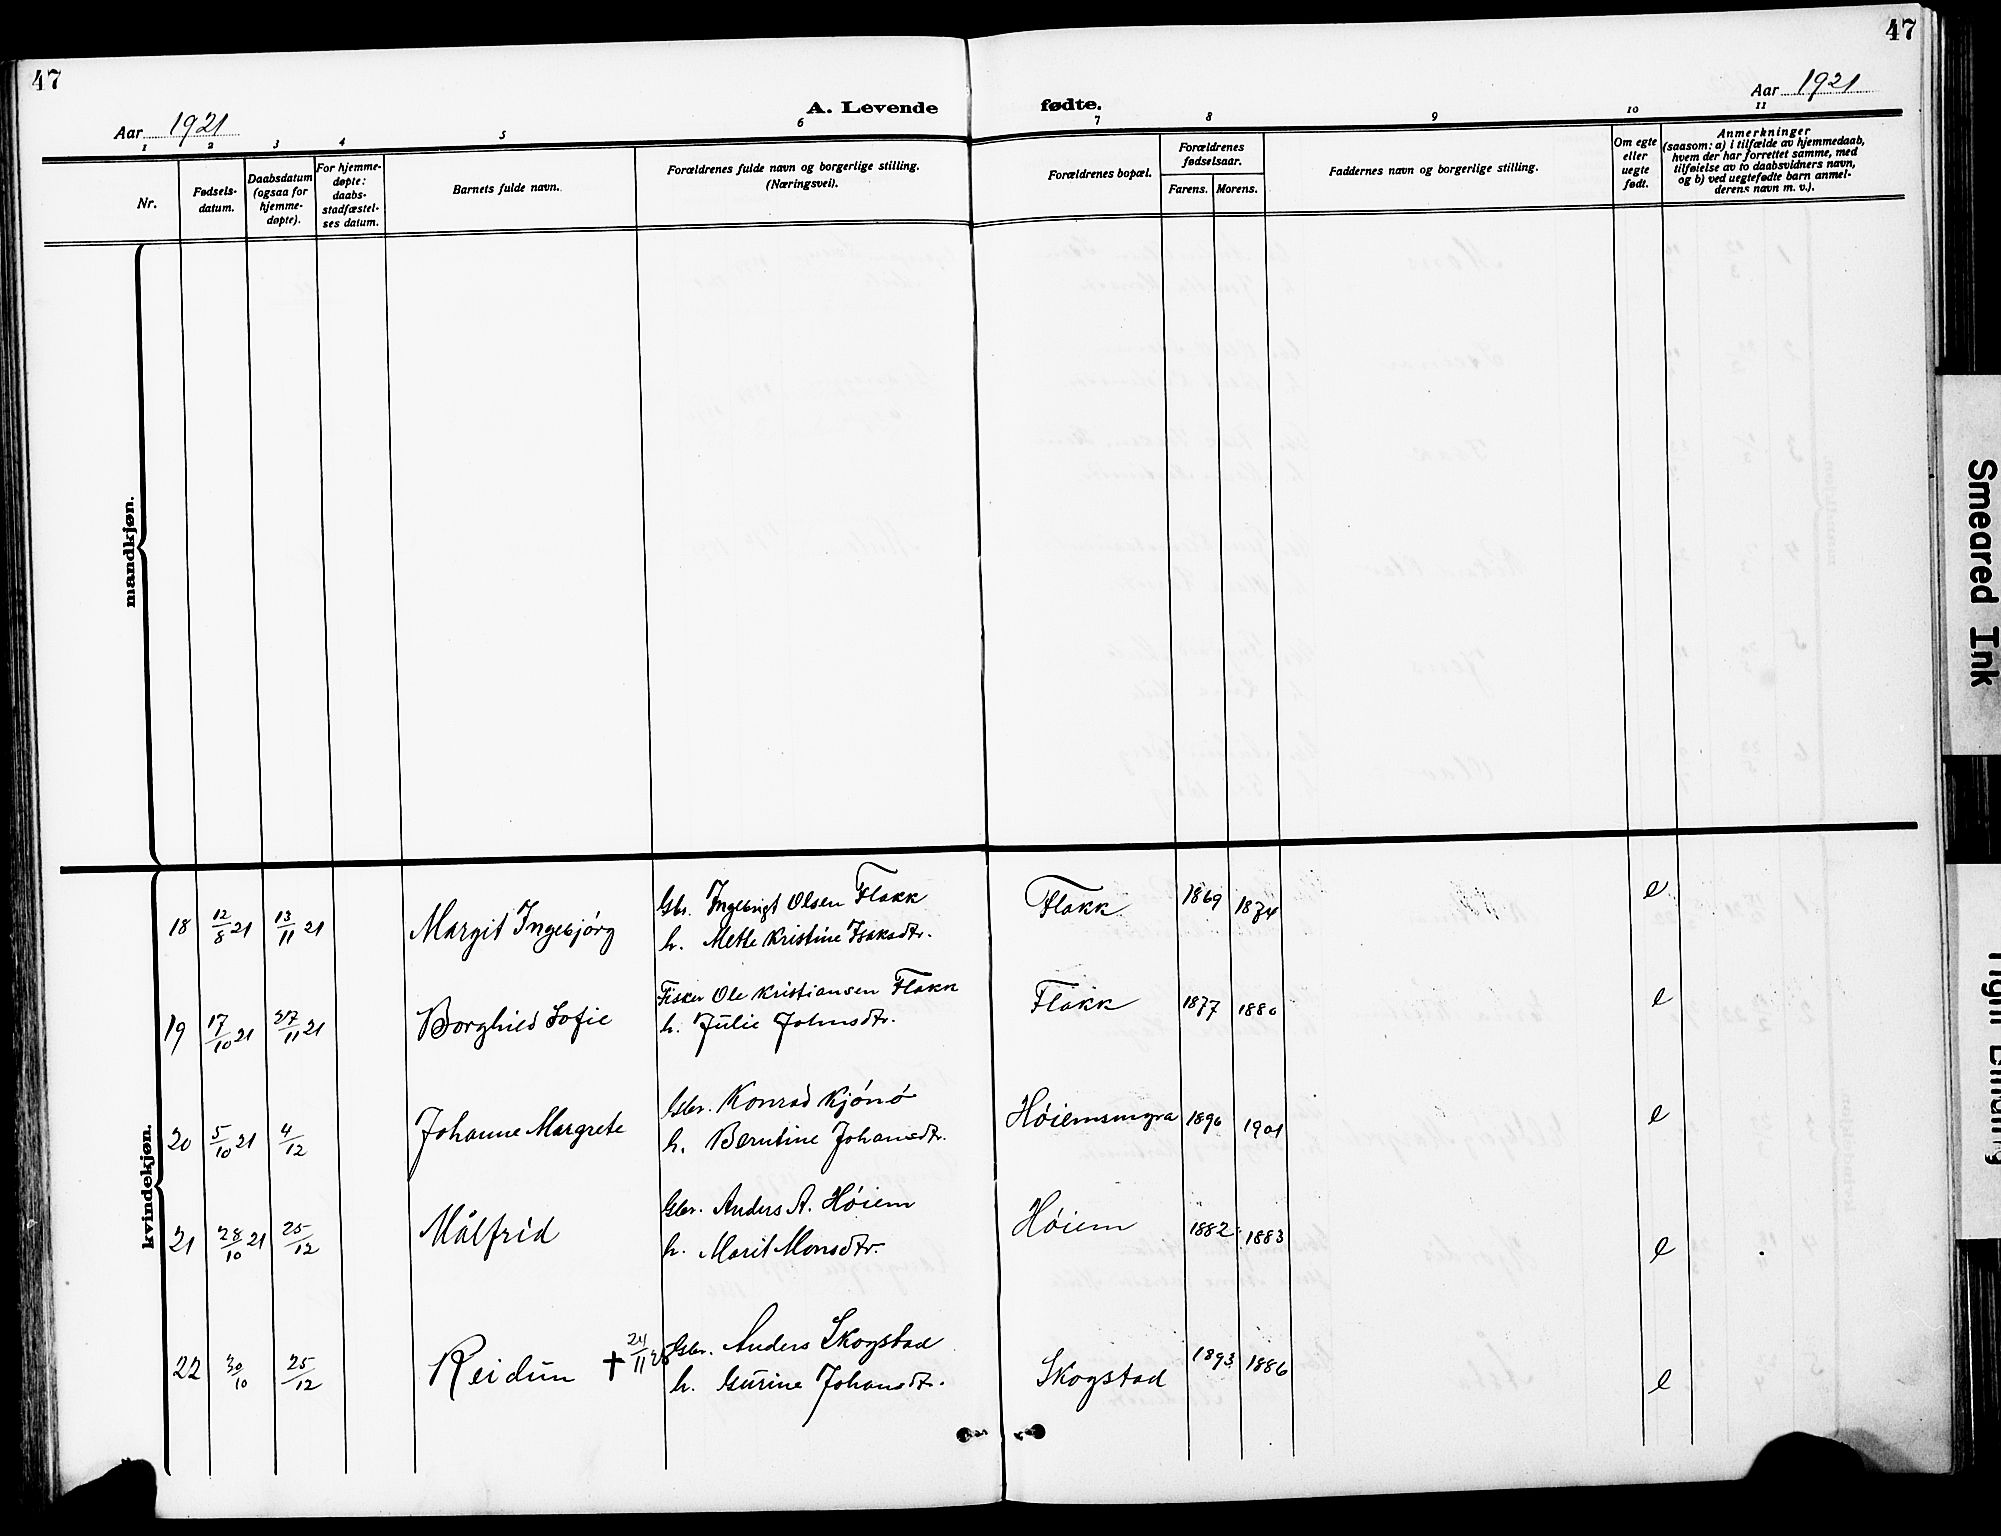 47
47
Aar 1921
A. Levende fødte.
Aar 1921
1 2 3 4 5 6 7 8 9 10 11
Nr.
Fødsels-
datum.
Daabsdatum
(ogsaa for
hjemme-
døpte).
For hjemme-
døpte:
daabs-
stadfæstel-
ses datum.
Barnets fulde navn.
Forældrenes fulde navn og borgerlige stilling.
(Næringsvei).
Forældrenes bopæl.
Forældrenes
fødselsaar.
Farens. Morens.
Faddernes navn og borgerlige stilling.
Om egte
eller
uegte
født.
Anmerkninger
(saasom: a) i tilfælde av hjemmedaab,
hvem der har forrettet samme, med
tilføielse av to daabsvidners navn,
og b) ved uegtefødte barn anmel-
derens navn m. v.).
mandkjøn.
kvindekjøn.
18 12/8 21 13/11 21 Margit Ingebjórg Gbr. Ingebrigt Olsen Flakk Flakk 1869 1874 e
h. Mette Kristine Isaksdtr.
19 17/10 21 27/11 21 Borghild Sofie Fisker Ole Kristiansen Flakk Flakk 1877 1880 e
h. Julie Johnsdtr.
20 5/10 21 4/12 Johanne Margrete Gbr. Konrad Kjónó Høiemsmyra 1890 1901 e
h. Berntine Johansdtr.
21 28/10 21 25/12 Målfrid Gbr. Anders A. Høiem Høiem 1882 1883 e
h. Marit Monsdtr.
22 30/10 25/12 Reidun † 24/11 Gbr. Anders Skogstad Skogstad 1893 1886 e
h. Gurine Johansdtr.
Smeared Ink
Tight Binding